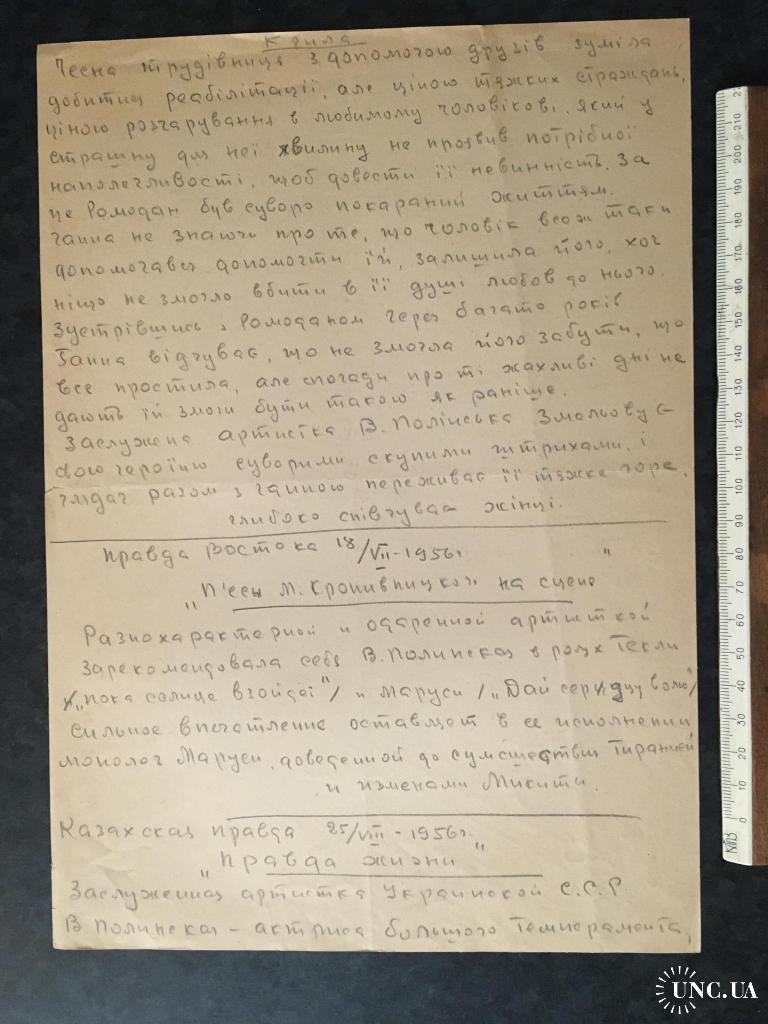 Крила
Чесна трудівниця з допомогою друзів зуміла
добитись реабілітації, але ціною тяжких страждань,
ціною розчарування в любимому чоловікові, який у
страшну для неї хвилину не проявив потрібної
наполегливості, щоб довести її невинність. За
це Ромодан був суворо покараний життям.
Ганна не знаючи про те, що чоловік всеж таки
допомогти їй, залишила його, хоч
ніщо не змогло вбити в її душі любов до нього.
Зустрівшись з Ромоданом через багато років
Ганна відчуває, що не змогла його забути, що
все простила, але спогади про ті жахливі дні не
дають їй змоги бути такою як раніше.
Заслужена артистка В. Полінська змальовує
свою героїню суворими, скупими штрихами, і
глядач разом з Ганною переживає її тяжке горе,
глибоко співчуває жінці.
Правда Востока 18/VII-1956г.
„П'есы М. Кропивницкого на сцене"
Разнохарактерной и одаренной артисткой
зарекомендовала себя В. Полинская в ролях Текли
/„пока солнце взойдет"/ и Маруси /„Дай сердцу волю/
Сильное впечатление оставляет в ее исполнении
монолог Маруси, доведенной до сумсшествия тиранией
и изменами Микиты.
Казахская правда 25/VIII-1956г.
„Правда жизни"
Заслуженная артистка Украинской С.С.Р
В Полинская - актриса большого темперамента,
0 10 20 30 40 50 60 70 80 90 100 110 120 130 140 150 160 170 180 190 200 210
UNC.UA